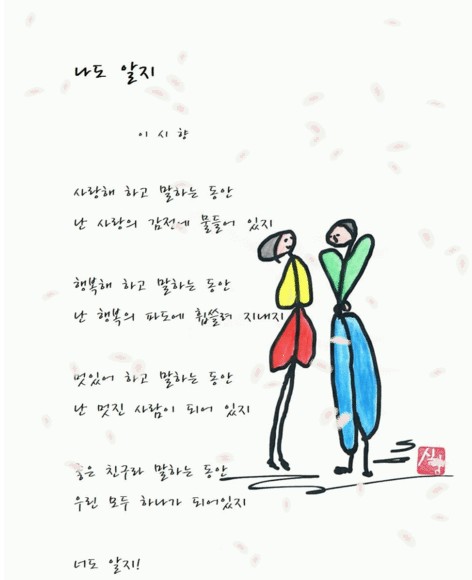 나도 알지
이 시 향
사랑해 하고 말하는 동안
난 사랑의 감전에 물들어 있지
행복해 하고 말하는 동안
난 행복의 파도에 휩쓸려 지내지
멋있어 하고 말하는 동안
난 멋진 사람이 되어 있지
좋은 친구라 말하는 동안
우린 모두 하나가 되어있지
너도 알지!